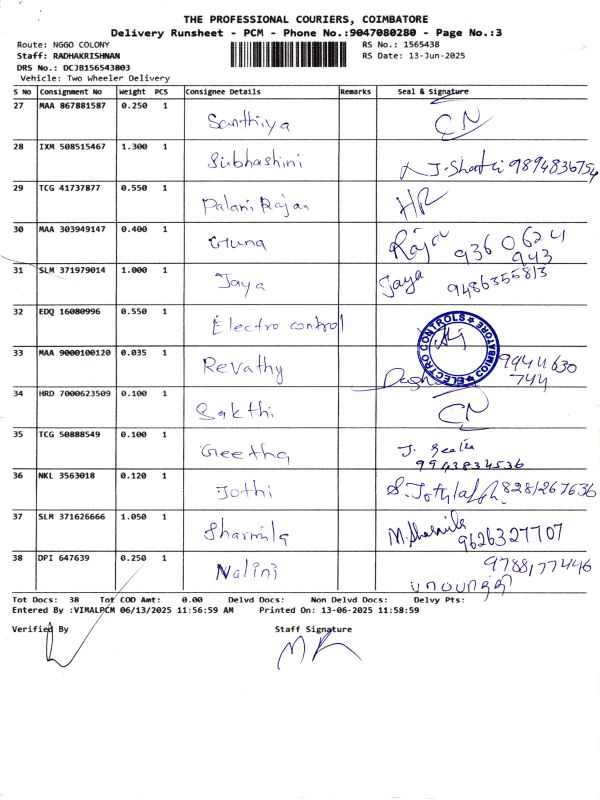 THE PROFESSIONAL COURIERS, COIMBATORE
Delivery Runsheet - PCM - Phone No.:9047080280 - Page No.:3
Route: NGGO COLONY
RS No.: 1565438
Staff: RADHAKRISHNAN
RS Date: 13-Jun-2025
DRS No.: DCJB156543803
Vehicle: Two Wheeler Delivery
S No Consignment No Weight PCS Consignee Details Remarks Seal & Signature
27 MAA 867881587 0.250 1 Santhiya CN
28 IXM 508515467 1.300 1 Subhashini 9894836754
29 TCG 41737877 0.550 1 Palani Rajan HR
30 MAA 303949147 0.400 1 Guna Raja 9360624
943
31 SLM 371979014 1.000 1 Jaya Jaya 9486355813
32 EDQ 16080996 0.550 1 Electro control ELECTRO CONTROLS COIMBATORE
33 MAA 9000100120 0.035 1 Revathy 9944630
744
34 HRD 7000623509 0.100 1 Sakthi CN
35 TCG 50888549 0.100 1 Geetha J. Geetha
9943834536
36 NKL 3563018 0.120 1 Jothi 8281267636
37 SLM 371626666 1.050 1 Sharmila M. Sharmila
9626327707
38 DPI 647639 0.250 1 Nalini 9788177446
Tot Docs: 38 Tot COD Amt: 0.00 Delvd Docs: Non Delvd Docs: Delvy Pts:
Entered By :VIMALPCM 06/13/2025 11:56:59 AM Printed On: 13-06-2025 11:58:59
Verified By Staff Signature